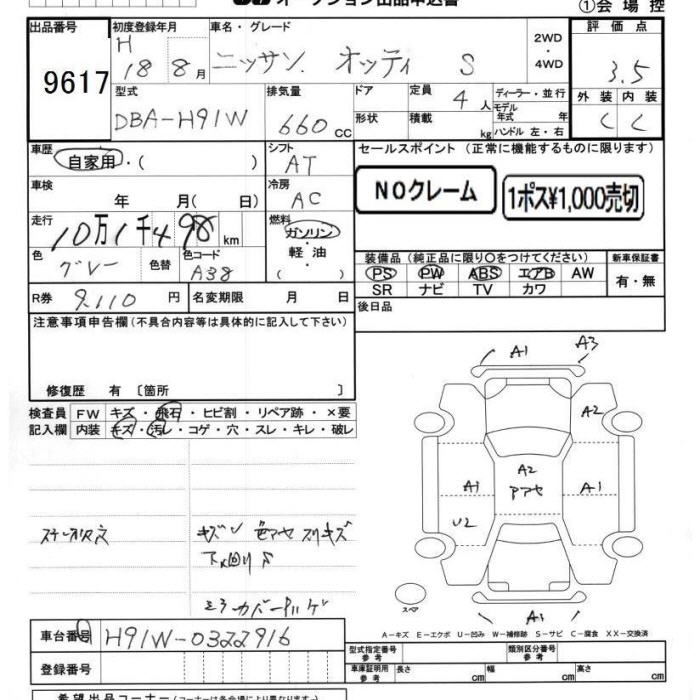 オークション出品申込書
①会場控
出品番号 9617
初度登録年月 H 18 8月
車名・グレード ニッサン オッティ S
2WD・4WD
評価点 3.5
外装 内装
C C
型式 DBA-H91W
排気量 660 CC
ドア
形状
定員 4人
積載 kg
ディーラー・並行
モデル年式 年
ハンドル 左・右
車歴 自家用・( )
シフト AT
セールスポイント (正常に機能するものに限ります)
NOクレーム
1ポス¥1,000売切
車検 年 月( 日)
冷房 AC
走行 10万1千498 km
燃料 ガソリン 軽油 ( )
色 グレー 色替
色コード A38
装備品 (純正品に限り○をつけてください)
新車保証書
PS PW ABS エアB AW
有・無
SR ナビ TV カワ
R券 9,110 円
名変期限 月 日
後日品
注意事項申告欄 (不具合内容等は具体的に記入して下さい)
修復歴 有 〔箇所 〕
検査員記入欄
FW キズ・飛石・ヒビ割・リペア跡・×要
内装 キズ・汚レ・コゲ・穴・スレ・キレ・破レ
A1 A3
A2
A2
アアセ
A1 A1
U2
A1
キズ 色アセ スリキズ
下廻りS
ミラーカバー
スペア
A-キズ E-エクボ U-凹み W-補修跡 S-サビ C-腐食 XX-交換済
車台番号 H91W-0322916
登録番号
型式指定番号 参考
類別区分番号 参考
車庫証明用 参考 長さ cm 幅 cm 高さ cm
希望出品コーナー (コーナーは各会場により異なります)